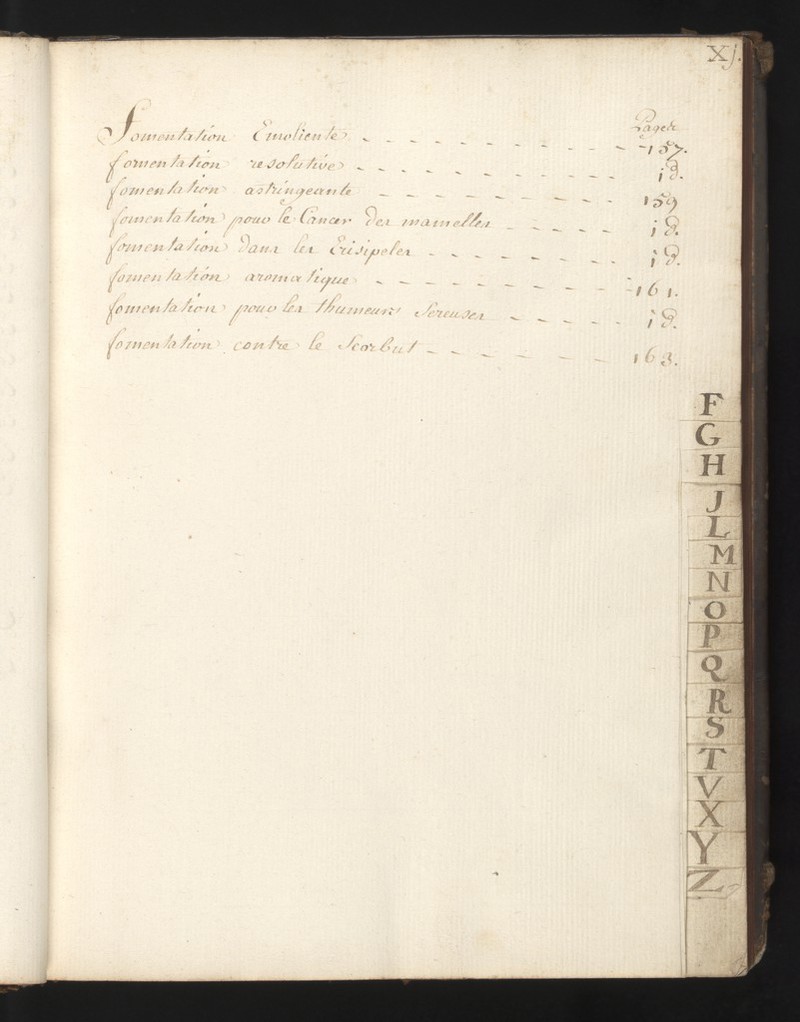 Xj.
Pages
Fomentation Emoliente - - - - - - - - - - 157.
fomentation resolutive - - - - - - - - - - id.
fomentation astringeante - - - - - - - - 159
fomentation pour le Cancer des mamelles - - - - - id.
fomentation dans les Erisipeles - - - - - - - id.
fomentation aromatique - - - - - - - - - 161.
fomentation pour les thumeurs Sereuses - - - - - id.
fomentation contre le Scorbut - - - - - - - 163.
F
G
H
J
L
M
N
O
P
Q
R
S
T
V
X
Y
Z